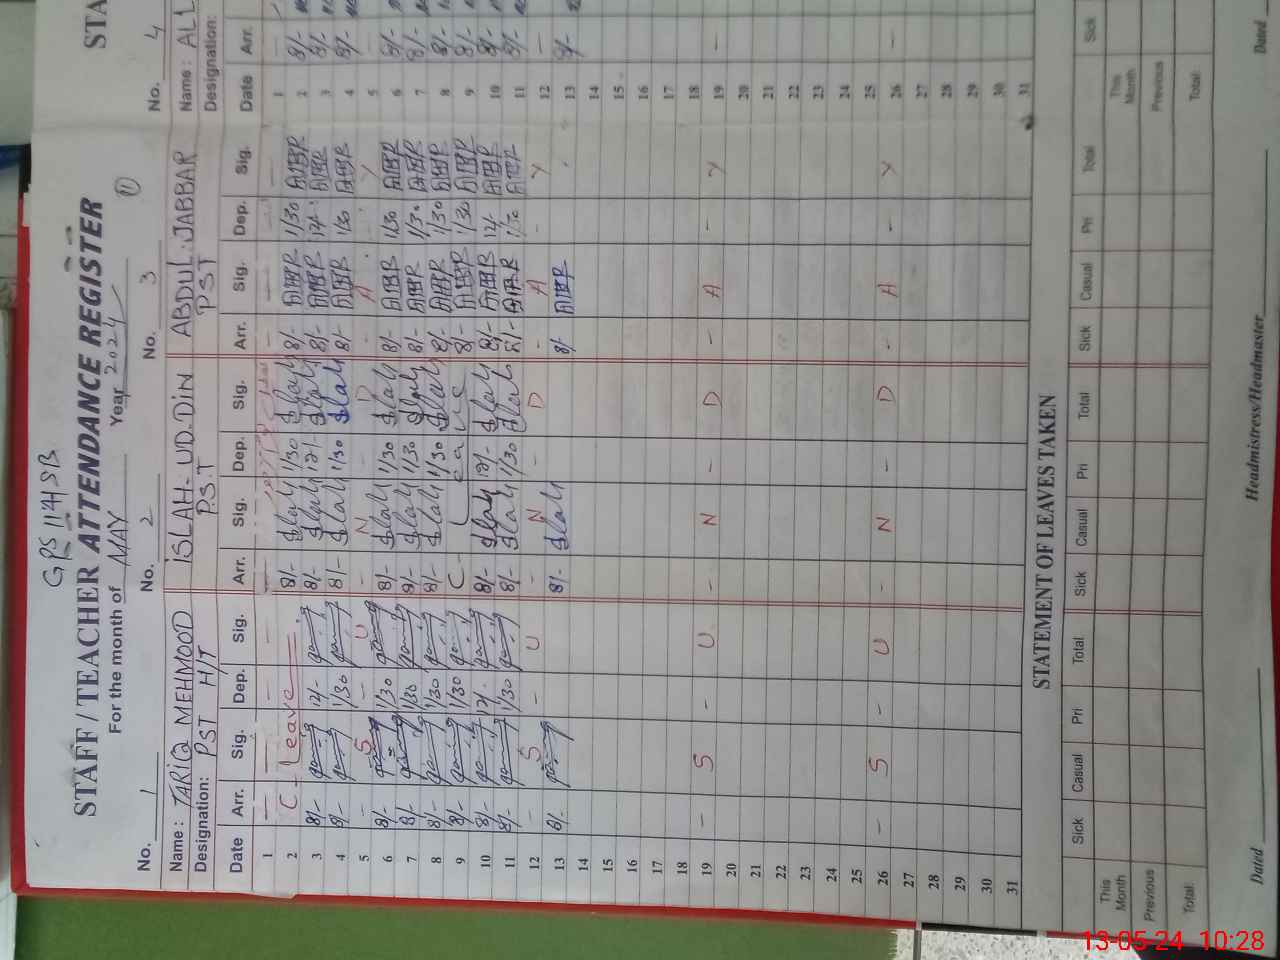 GPS 114 SB
STAFF / TEACHER ATTENDANCE REGISTER
For the month of MAY Year 2024
No. 1 No. 2 No. 3 No. 4
Name: TARIQ MEHMOOD ISLAH-UD.DIN ABDUL.JABBAR Name: ALL
Designation: PST H/T P.S.T PST Designation:
Date Arr. Sig. Dep. Sig. Arr. Sig. Dep. Sig. Arr. Sig. Dep. Sig. Date Arr.
1 — — — — — — — 1
2 C-Leave 8/- Slah 1/30 Slah 8/- AJBR 1/30 AJBR 2 8/-
3 8/- 12/- 8/- Slah 12/- Slah 8/- AJBR 12/- AJBR 3 8/-
4 8/- 1/30 8/- Slah 1/30 Slah 8/- AJBR 1/30 AJBR 4 8/-
5 - S - U - N - D - A - Y 5 -
6 8/- 1/30 8/- Slah 1/30 Slah 8/- AJBR 1/30 AJBR 6 8/-
7 8/- 1/30 8/- Slah 1/30 Slah 8/- AJBR 1/30 AJBR 7 8/-
8 8/- 1/30 8/- Slah 1/30 Slah 8/- AJBR 1/30 AJBR 8 8/-
9 8/- 1/30 C - Leave 8/- AJBR 1/30 AJBR 9 8/-
10 8/- 12/- 8/- Slah 12/- Slah 8/- AJBR 12/- AJBR 10 8/-
11 8/- 1/30 8/- Slah 1/30 Slah 8/- AJBR 1/30 AJBR 11 8/-
12 - S - U - N - D - A - Y 12 -
13 8/- 8/- Slah 8/- AJBR 13 8/-
14 14
15 15
16 16
17 17
18 18
19 - S - U - N - D - A - Y 19 -
20 20
21 21
22 22
23 23
24 24
25 25
26 - S - U - N - D - A - Y 26 -
27 27
28 28
29 29
30 30
31 31
STATEMENT OF LEAVES TAKEN
Sick Casual Pri Total Sick Casual Pri Total Sick Casual Pri Total Sick
This Month This Month
Previous Previous
Total Total
Dated Headmistress/Headmaster Dated
STA
13-05-24 10:28